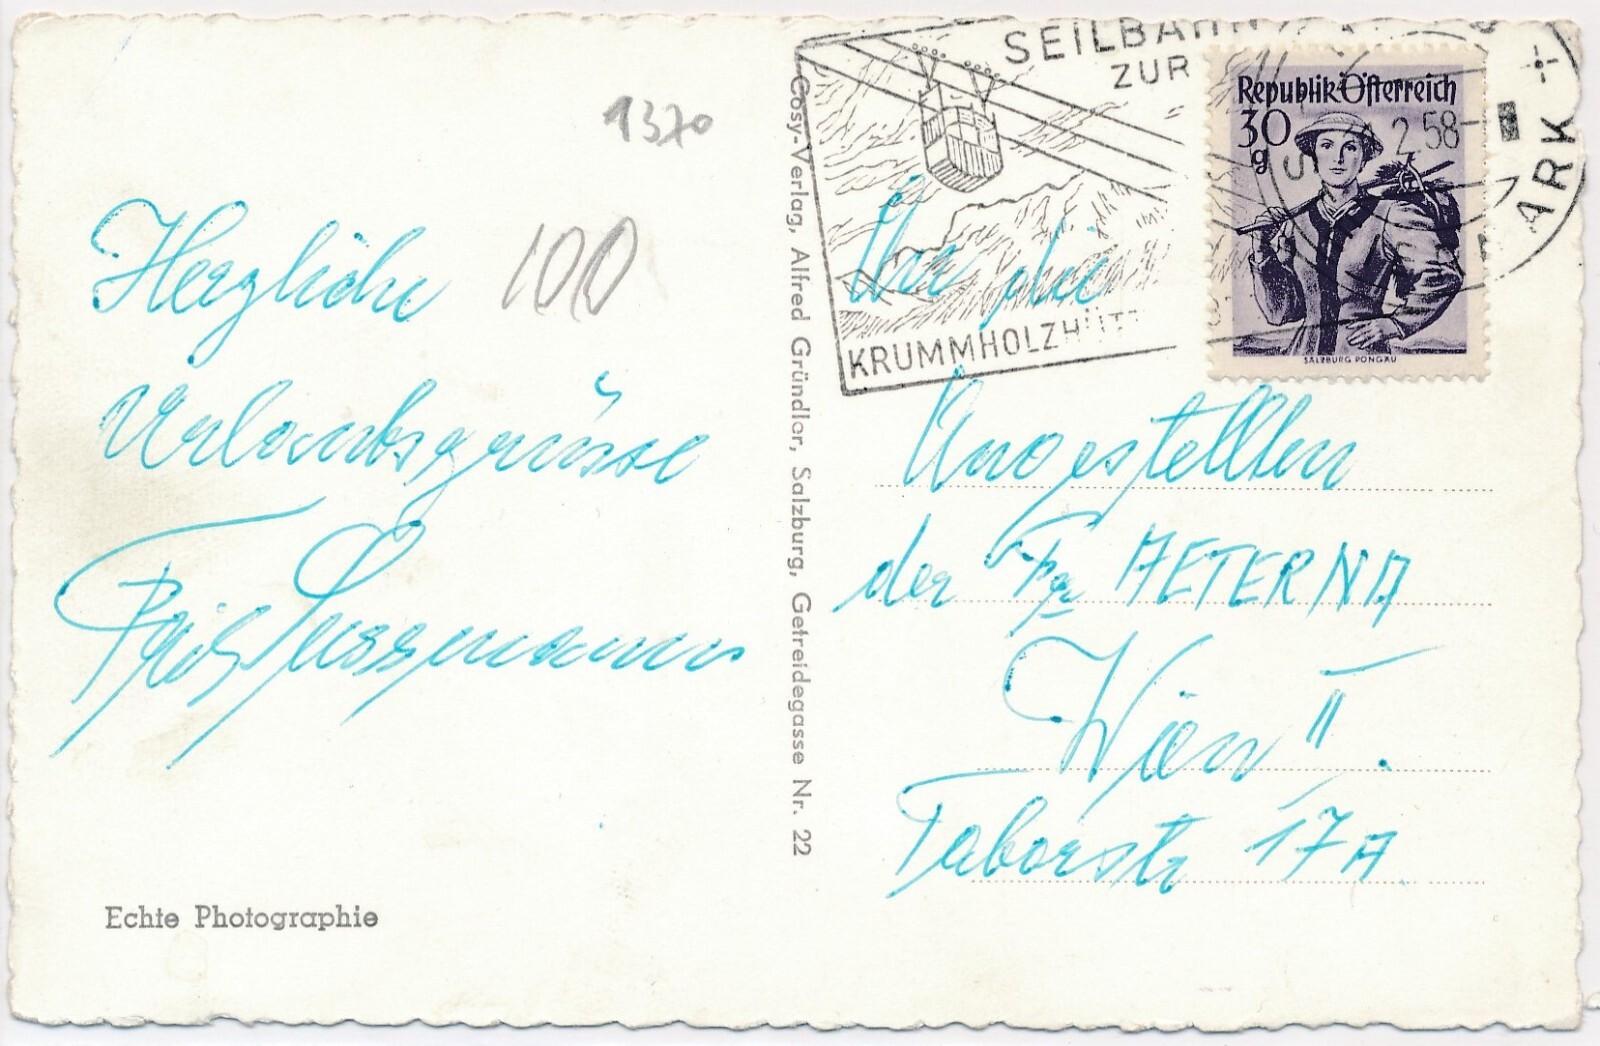 1370
100
Herzliche
Urlaubsgrüsse
Echte Photographie
Cosy-Verlag, Alfred Gründler, Salzburg, Getreidegasse Nr. 22
SEILBAHN
ZUR
KRUMMHOLZHÜT
Republik Österreich
30
g
SALZBURG PONGAU
2.58
ARK
An die
Angestellten
der Fa AETERNA
Wien II.
Taborstr 17A